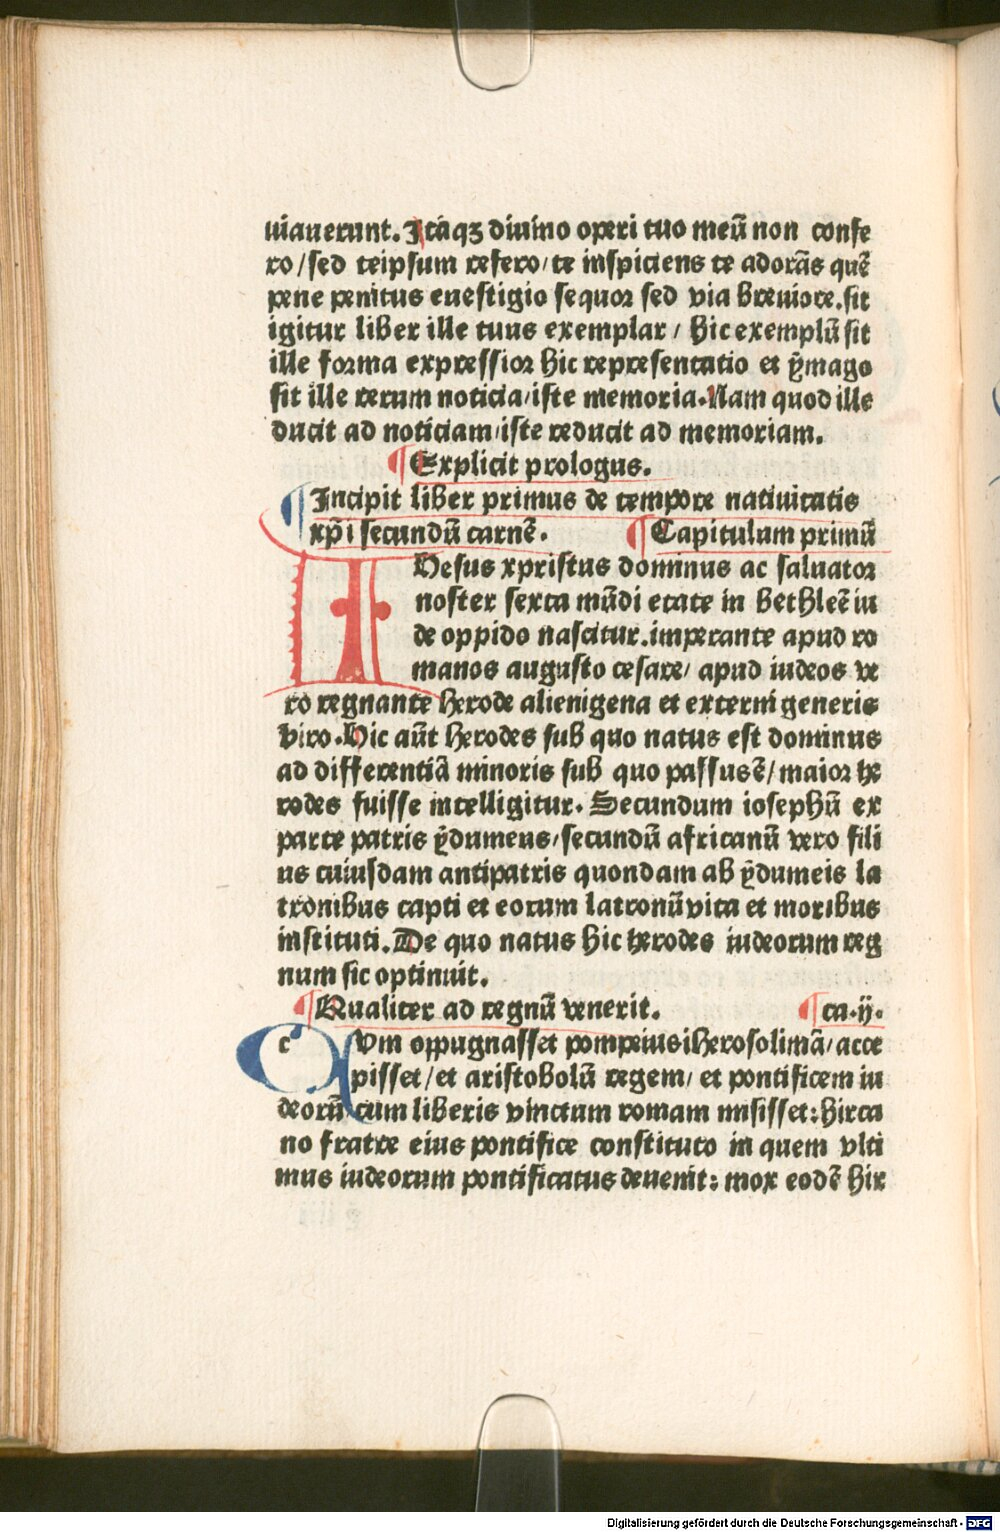 uiãuerunt. Itaqꝫ diuino operi tuo meũ non confe
ro/sed teipsum refero/te inspiciens te adorãs quẽ
pene penitus euestigio sequor sed via breuiore. sit
igitur liber ille tuus exemplar/ hic exemplũ sit
ille forma expressior hic representatio et ẏmago
sit ille rerum noticia/iste memoria. Nam quod ille
ducit ad noticiam/iste reducit ad memoriam.
¶ Explicit prologus.
¶ Incipit liber primus de tempore natiuitatis
xp̃i secundũ carnẽ. ¶ Capitulum primũ
IHesus xpristus dominus ac saluator
noster sexta mũdi etate in bethleẽ iu
de oppido nascitur. imperante apud ro
manos augusto cesare/ apud iudeos ve
ro regnante herode alienigena et externi generis
viro. Hic aũt herodes sub quo natus est dominus
ad differentiã minoris sub quo passusẽ/ maior he
rodes fuisse intelligitur. Secundum iosephũ ex
parte patris ẏdumeus/secundũ africanũ vero fili
us cuiusdam antipatris quondam ab ẏdumeis la
tronibus capti et eorum latronũ vita et moribus
instituti. De quo natus hic herodes iudeorum reg
num sic optinuit.
¶ Qualiter ad regnũ venerit. ¶ ca. ij.
cVm oppugnasset pompeius iherosolimã/ acce
pisset/ et aristobolũ regem/ et pontificem iu
deorũ cum liberis vinctum romam misisset: hirca
no fratre eius pontifice constituto in quem vlti
mus iudeorum pontificatus deuenit: mox eodẽ hir
Digitalisierung gefördert durch die Deutsche Forschungsgemeinschaft - DFG